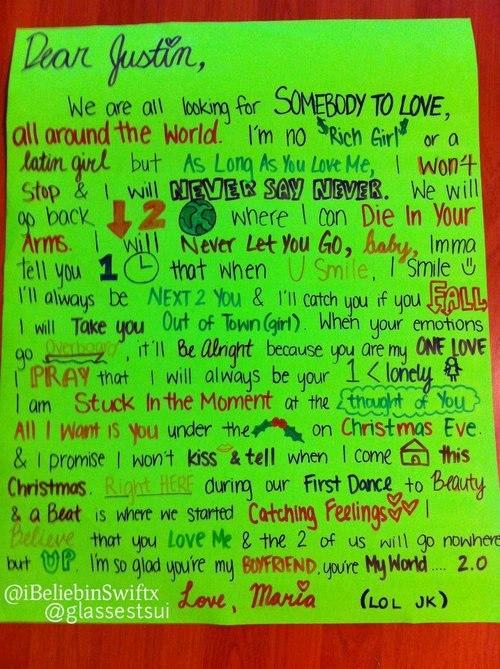 Dear Justin,
We are all looking for SOMEBODY TO LOVE,
all around the World. I'm no "Rich Girl" or a
latin girl but As Long As You Love Me, I won't
Stop & I will NEVER SAY NEVER. We will
go back 2 where I can Die In Your
Arms. I will Never Let You Go, Baby, Imma
tell you 1 that when U Smile, I Smile
I'll always be NEXT 2 You & I'll catch you if you FALL
I will Take you Out of Town (girl). When your emotions
go Overboard, it'll Be Alright because you are my ONE LOVE
I PRAY that I will always be your 1 < lonely
I am Stuck In the Moment at the thought of You
All I Want is You under the on Christmas Eve.
& I promise I won't kiss & tell when I come this
Christmas. Right HERE during our First Dance to Beauty
& a Beat is where we started Catching Feelings I
Believe that you Love Me & the 2 of us will go nowhere
but UP. I'm so glad you're my BOYFRIEND, you're My World.... 2.0
Love, Maria (LOL JK)
@iBeliebinSwiftx
@glassestsui